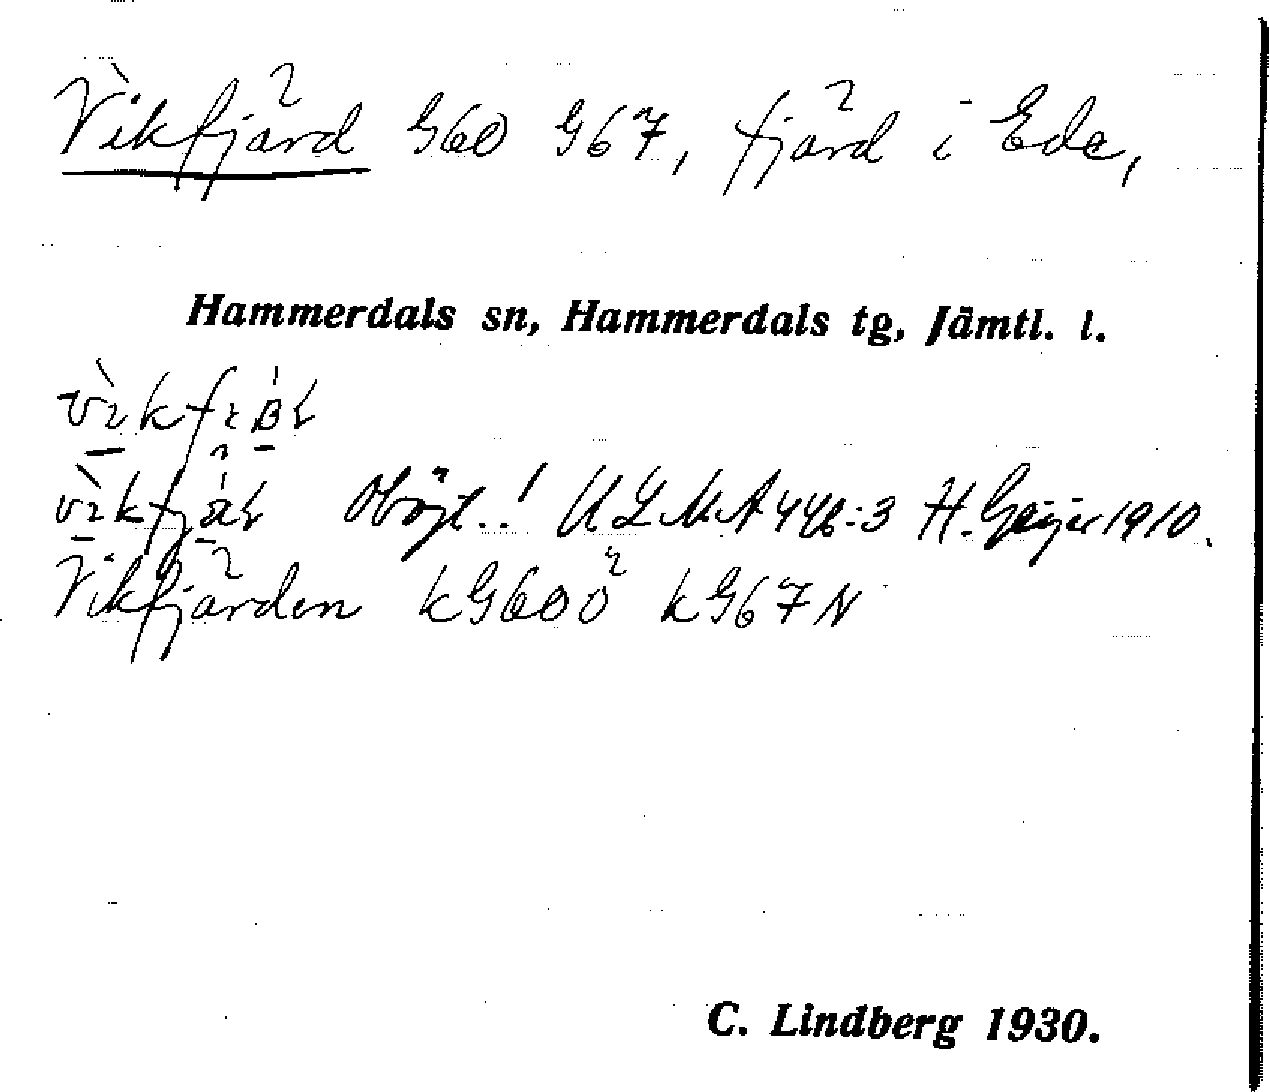 Vikfjärd G60 G67, fjärd i Ede,
Hammerdals sn, Hammerdals tg, Jämtl. l.
Oböjt..! ULMA 446:3 H. Geijer 1910.
Vikfjärden kG60Ö kG67N
C. Lindberg 1930.